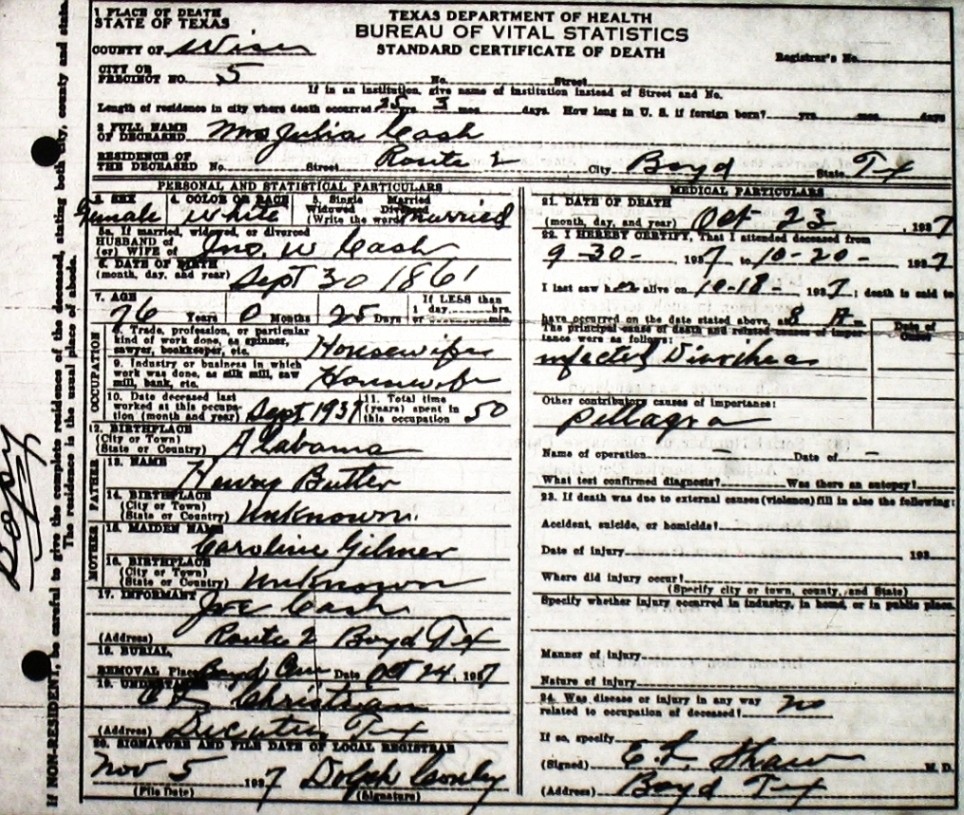 1 PLACE OF DEATH
STATE OF TEXAS
TEXAS DEPARTMENT OF HEALTH
BUREAU OF VITAL STATISTICS
STANDARD CERTIFICATE OF DEATH
COUNTY OF Wise
Registrar's No.
CITY OR
PRECINCT NO. 5 No. Street
If in an institution, give name of institution instead of Street and No.
Length of residence in city where death occurred 25 yrs 3 mos. days. How long in U. S. if foreign born? yrs mos. days
2 FULL NAME
OF DECEASED Mrs Julia Cash
RESIDENCE OF
THE DECEASED No. Street Route 2 City Boyd State Tx
PERSONAL AND STATISTICAL PARTICULARS
3. SEX Female 4. COLOR OR RACE White 5. Single Married
Widowed Divorced
(Write the word) Married
5a. If married, widowed, or divorced
HUSBAND of
(or) WIFE of Jno. W Cash
6. DATE OF BIRTH
(month, day, and year) Sept 30 1861
7. AGE
76 Years 0 Months 25 Days If LESS than
1 day, hrs.
or min.
OCCUPATION
8. Trade, profession, or particular
kind of work done, as spinner,
sawyer, bookkeeper, etc. Housewife
9. Industry or business in which
work was done, as silk mill, saw
mill, bank, etc. Housewife
10. Date deceased last
worked at this occupa-
tion (month and year) Sept 1937 11. Total time
(years) spent in
this occupation 50
12. BIRTHPLACE
(City or Town)
(State or Country) Alabama
FATHER
13. NAME Henry Butler
14. BIRTHPLACE
(City or Town)
(State or Country) Unknown
MOTHER
15. MAIDEN NAME
Caroline Gilmer
16. BIRTHPLACE
(City or Town)
(State or Country) Unknown
17. INFORMANT
Joe Cash
(Address) Route 2 Boyd Tex
18. BURIAL,
REMOVAL Place Boyd Cem Date Oct 24, 1937
19. UNDERTAKER
Christian
(Address) Decatur Tx
20. SIGNATURE AND FILE DATE OF LOCAL REGISTRAR
Nov 5 1937 Dolph Conley
(File Date) (Signature)
MEDICAL PARTICULARS
21. DATE OF DEATH
(month, day, and year) Oct 23, 1937
22. I HEREBY CERTIFY, That I attended deceased from
9-30- 1937 to 10-20- 1937
I last saw her alive on 10-18- 1937; death is said to
have occurred on the date stated above, at 8 A-
The principal cause of death and related causes of impor-
tance were as follows: Date of
Onset
Infected Diarrhea
Other contributory causes of importance:
pellagra
Name of operation - Date of -
What test confirmed diagnosis? Was there an autopsy?
23. If death was due to external causes (violence) fill in also the following:
Accident, suicide, or homicide?
Date of injury 193
Where did injury occur?
(Specify city or town, county, and State)
Specify whether injury occurred in industry, in home, or in public place.
Manner of injury
Nature of injury
24. Was disease or injury in any way
related to occupation of deceased? no
If so, specify
(Signed) E. L. Shaw M. D.
(Address) Boyd Tex
If NON-RESIDENT, be careful to give the complete residence of the deceased, stating both city, county and state.
The residence is the usual place of abode.
Copy